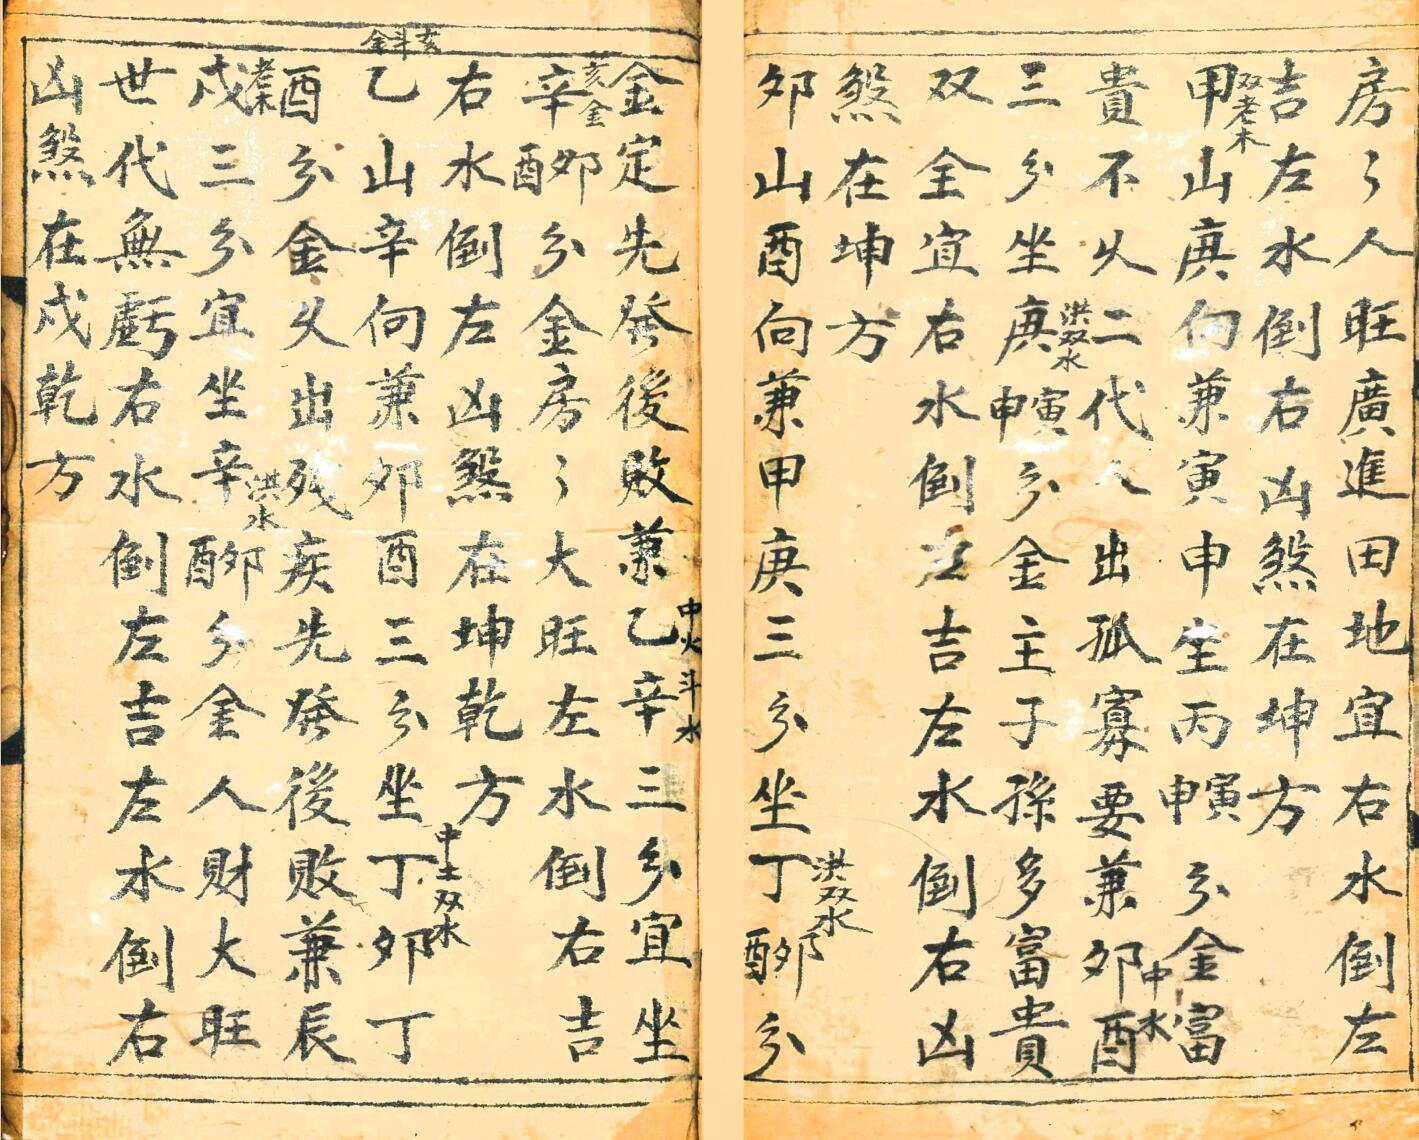 房〻人旺廣進田地宜右水倒左
吉左水倒右凶煞在坤方
双老木
甲山庚向兼寅申坐丙寅申分金富
貴不久二代人出孤寡要兼夘酉
中水
洪双水
三分坐庚寅申分金主子孫多富貴
双全宜右水倒左吉左水倒右凶
煞在坤方
洪双水
夘山酉向兼甲庚三分坐丁夘酉分
金定先發後敗兼乙辛三分宜坐
中火斗水
亥金
辛夘酉分金房〻大旺左水倒右吉
右水倒左凶煞在坤乾方
亥斗金
乙山辛向兼夘酉三分坐丁夘丁
中土双水
酉分金久出残疾先發後敗兼辰
洪水
戍三分宜坐辛夘酉分金人財大旺
世代無虧右水倒左吉左水倒右
凶煞在戍乾方